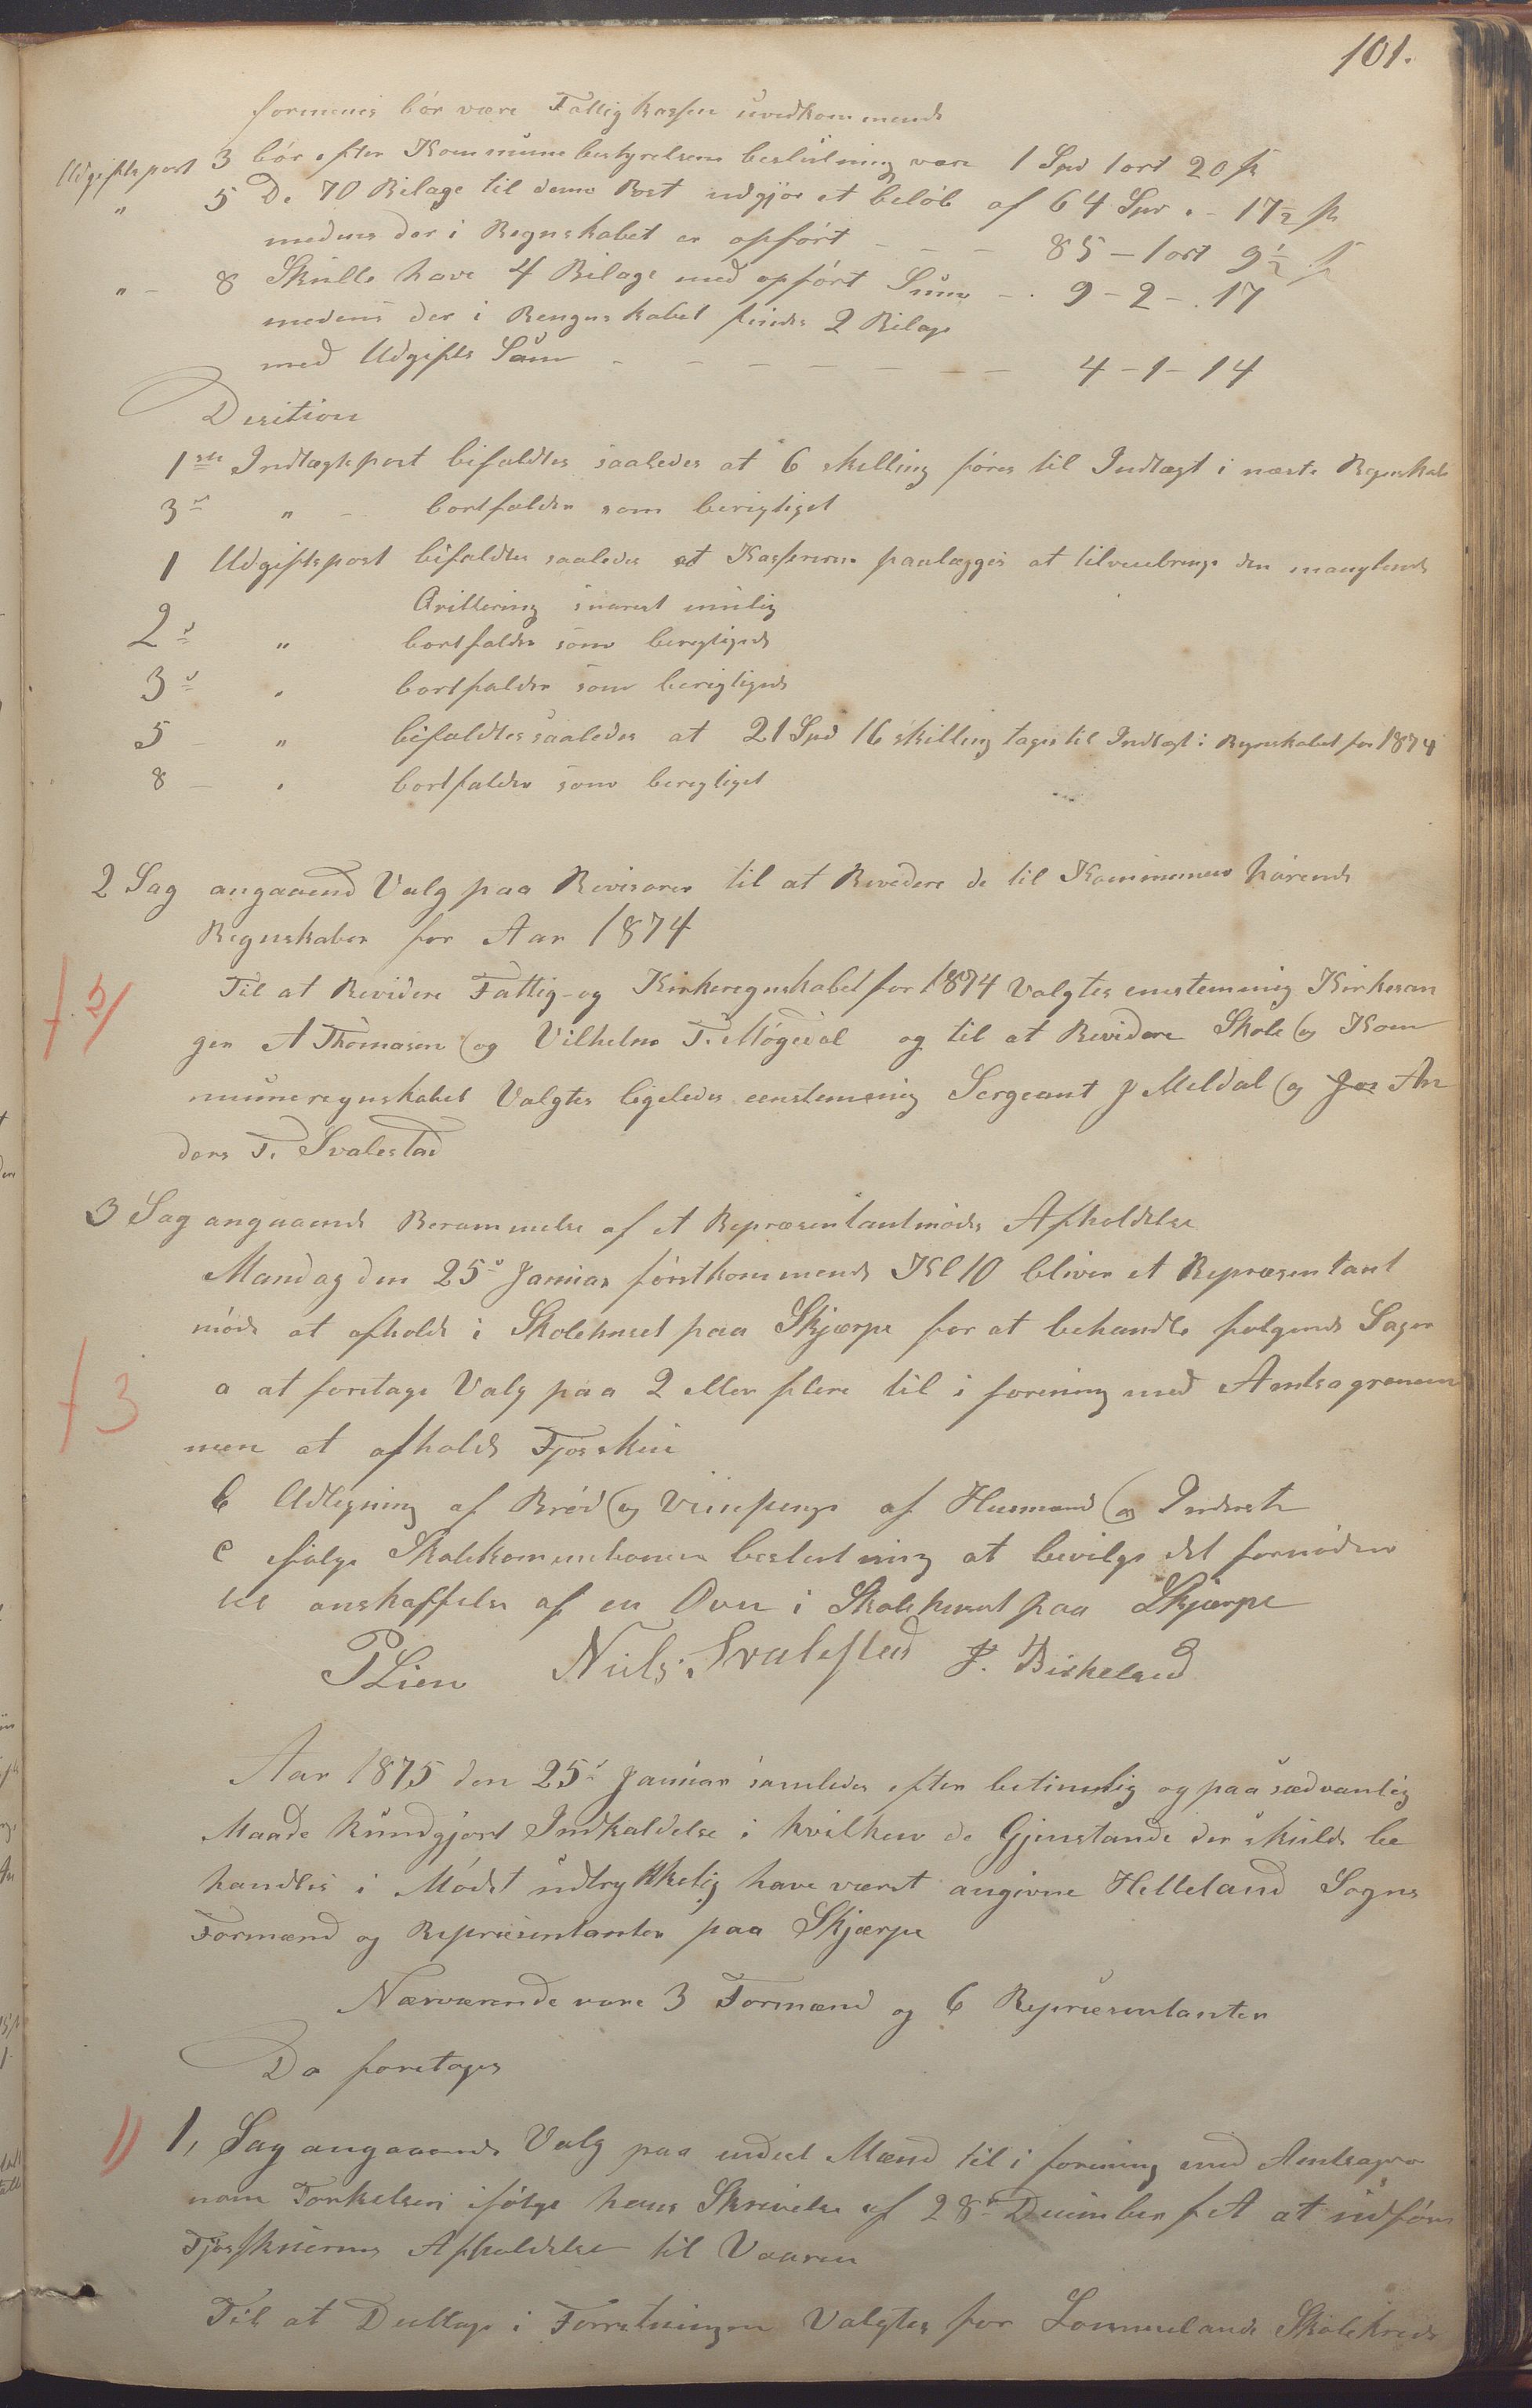 101.
formenes bör være Fattigkassen uvedkommende
Udgiftspost 3 bör efter Kommunebestyrelsens beslutning være 1 Spd 1 ort 20 sk
" 5 De 70 Bilage til denne Post udgjör et belöb af 64 Spd " - 17½ sk
medens der i Regnskabet er opfört - - - 85 - 1 ort 9½ sk
" - 8 Skulle have 4 Bilage med opfört Sum - . 9 - 2 - . 17
medens der i Rengnskabet findes 2 Bilage
med Udgifts Sum - - - - - - - 4 - 1 - 14
Desition
1ste Indtægtspost bifaldtes saaledes at 6 skilling föres til Indtægt i næste Regnskab
3die " - bortfalder som berigtiget
1 Udgiftspost bifaldtes saaledes at Kassereren paalægges at tilveiebringe den manglende
Qvittering snarest mulig
2d " bortfalder som berigtigede
3d " bortfalder som berigtigede
5 - " bifaldtes saaledes at 21 Spd 16 skilling tages til Indtægt i Regnskabet for 1874
8 - " bortfalder som berigtiget
2 Sag angaaende Valg paa Revisorer til at Revedere de til Kommunen hörende
Regnskaber for Aar 1874
f. 2/
Til at Revidere Fattig- og Kirkeregnskabet for 1874 Valgtes enstemmig Kirkesan
ger A Thomasen og Vilhelm T. Mögedal og til at Revidere Skole og Kom
muneregnskabet Valgtes ligeledes eenstemmig Sergeant J Meldal og Jar An
ders T. Svalestad
3 Sag angaaende Berammelse af et Repræsentantmödes Afholdelse
Mandag den 25de Januar förstkommende Kl 10 bliver et Repræsentant
möde at afholde i Skolehuset paa Skjærpe for at behandle fölgende Sager
f 3
a at foretage Valg paa 2 eller flere til i forening med Amtsagronom
men at afholde Fjosskue
b Udligning af Bröd og Viinpenge af Husmænd og Inderster
c ifölge Skolekommitionens beslutning at bevilge det fornödne
til anskaffelse af en Ovn i Skolehuset paa Skjærpe
P Lien Niels Svalestad J. Birkeland
Aar 1875 den 25de Januar samledes efter betimelig og paa sædvanlig
Maade kundgjort Indkaldelse i hvilken de Gjenstande der skulde be
handles i Mödet udtrykkelig have været angivne Helleland Sogns
Formænd og Repræsentanter paa Skjærpe
Nærværende vare 3 Formænd og 6 Repræsentanter
Da foretages
1/ 1, Sag angaaende Valg paa endeel Mænd til i forening med Amtsagro
nom Torkelsen ifölge hans Skrivelse af 28de December f A at udföre
Fjosskuernes Afholdelse til Vaaren
Til at Deeltage i Forretningen Valgtes for Lommelands Skolekreds